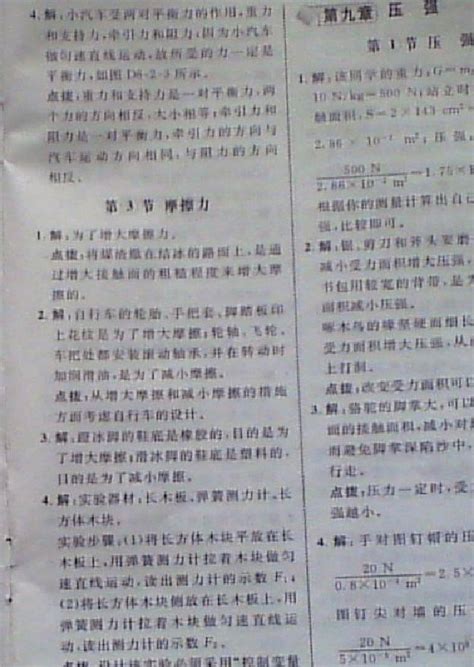 4. 解:小汽车受两对平衡力的作用,重力
和支持力,牵引力和阻力,因为小汽车
做匀速直线运动,故所受的力一定是
平衡力,如图D8-2-3所示。
点拨:重力和支持力是一对平衡力,两
个力的方向相反,大小相等;牵引力和
阻力是一对平衡力,牵引力的方向与
汽车运动方向相同,与阻力的方向
相反。
第3节 摩擦力
1. 解:为了增大摩擦力。
点拨:将煤渣撒在结冰的路面上,是通
过增大接触面的粗糙程度来增大摩
擦的。
2. 解:自行车的轮胎、手把套、脚踏板印
上花纹是为了增大摩擦;轮轴、飞轮、
车把处都安装滚动轴承,并在转动时
加润滑油,是为了减小摩擦。
点拨:从增大摩擦和减小摩擦的措施
方面考虑自行车的设计。
3. 解:蹬冰脚的鞋底是橡胶的,目的是为
了增大摩擦;滑冰脚的鞋底是塑料的,
目的是为了减小摩擦。
4. 解:实验器材:长木板、弹簧测力计、长
方体木块。
实验步骤:(1)将长方体木块平放在长
木板上,用弹簧测力计拉着木块做匀
速直线运动,读出测力计的示数F₁;
(2)将长方体木块侧放在长木板上,用
弹簧测力计拉着木块做匀速直线运
动,读出测力计的示数F₂。
点拨:设计该实验必须采用"控制变量
第九章 压 强
第1节 压 强
1. 解:该同学的重力:G=m
10 N/kg=500 N;站立时
触面积:S=2×143 cm²
2.86×10⁻² m²;压强:
500 N
2.86×10⁻² m² =1.75×1
根据你的测量计算出自己
强,比较即可。
2. 解:锯、剪刀和斧头要磨
减小受力面积增大压强,
书包用较宽的背带,是为
面积减小压强。
啄木鸟的喙坚硬而细长
受力面积增大压强,从而
上打洞。
点拨:改变受力面积可以
3. 解:骆驼的脚掌大,可以
面的接触面积,减小对
而避免脚掌深陷沙中,
行走。
点拨:压力一定时,受
强越小。
4. 解:手对图钉帽的压
20 N
0.8×10⁻⁴ m² =2.5×
图钉尖对墙的压
20 N
5×10⁻⁸ m² =4×10